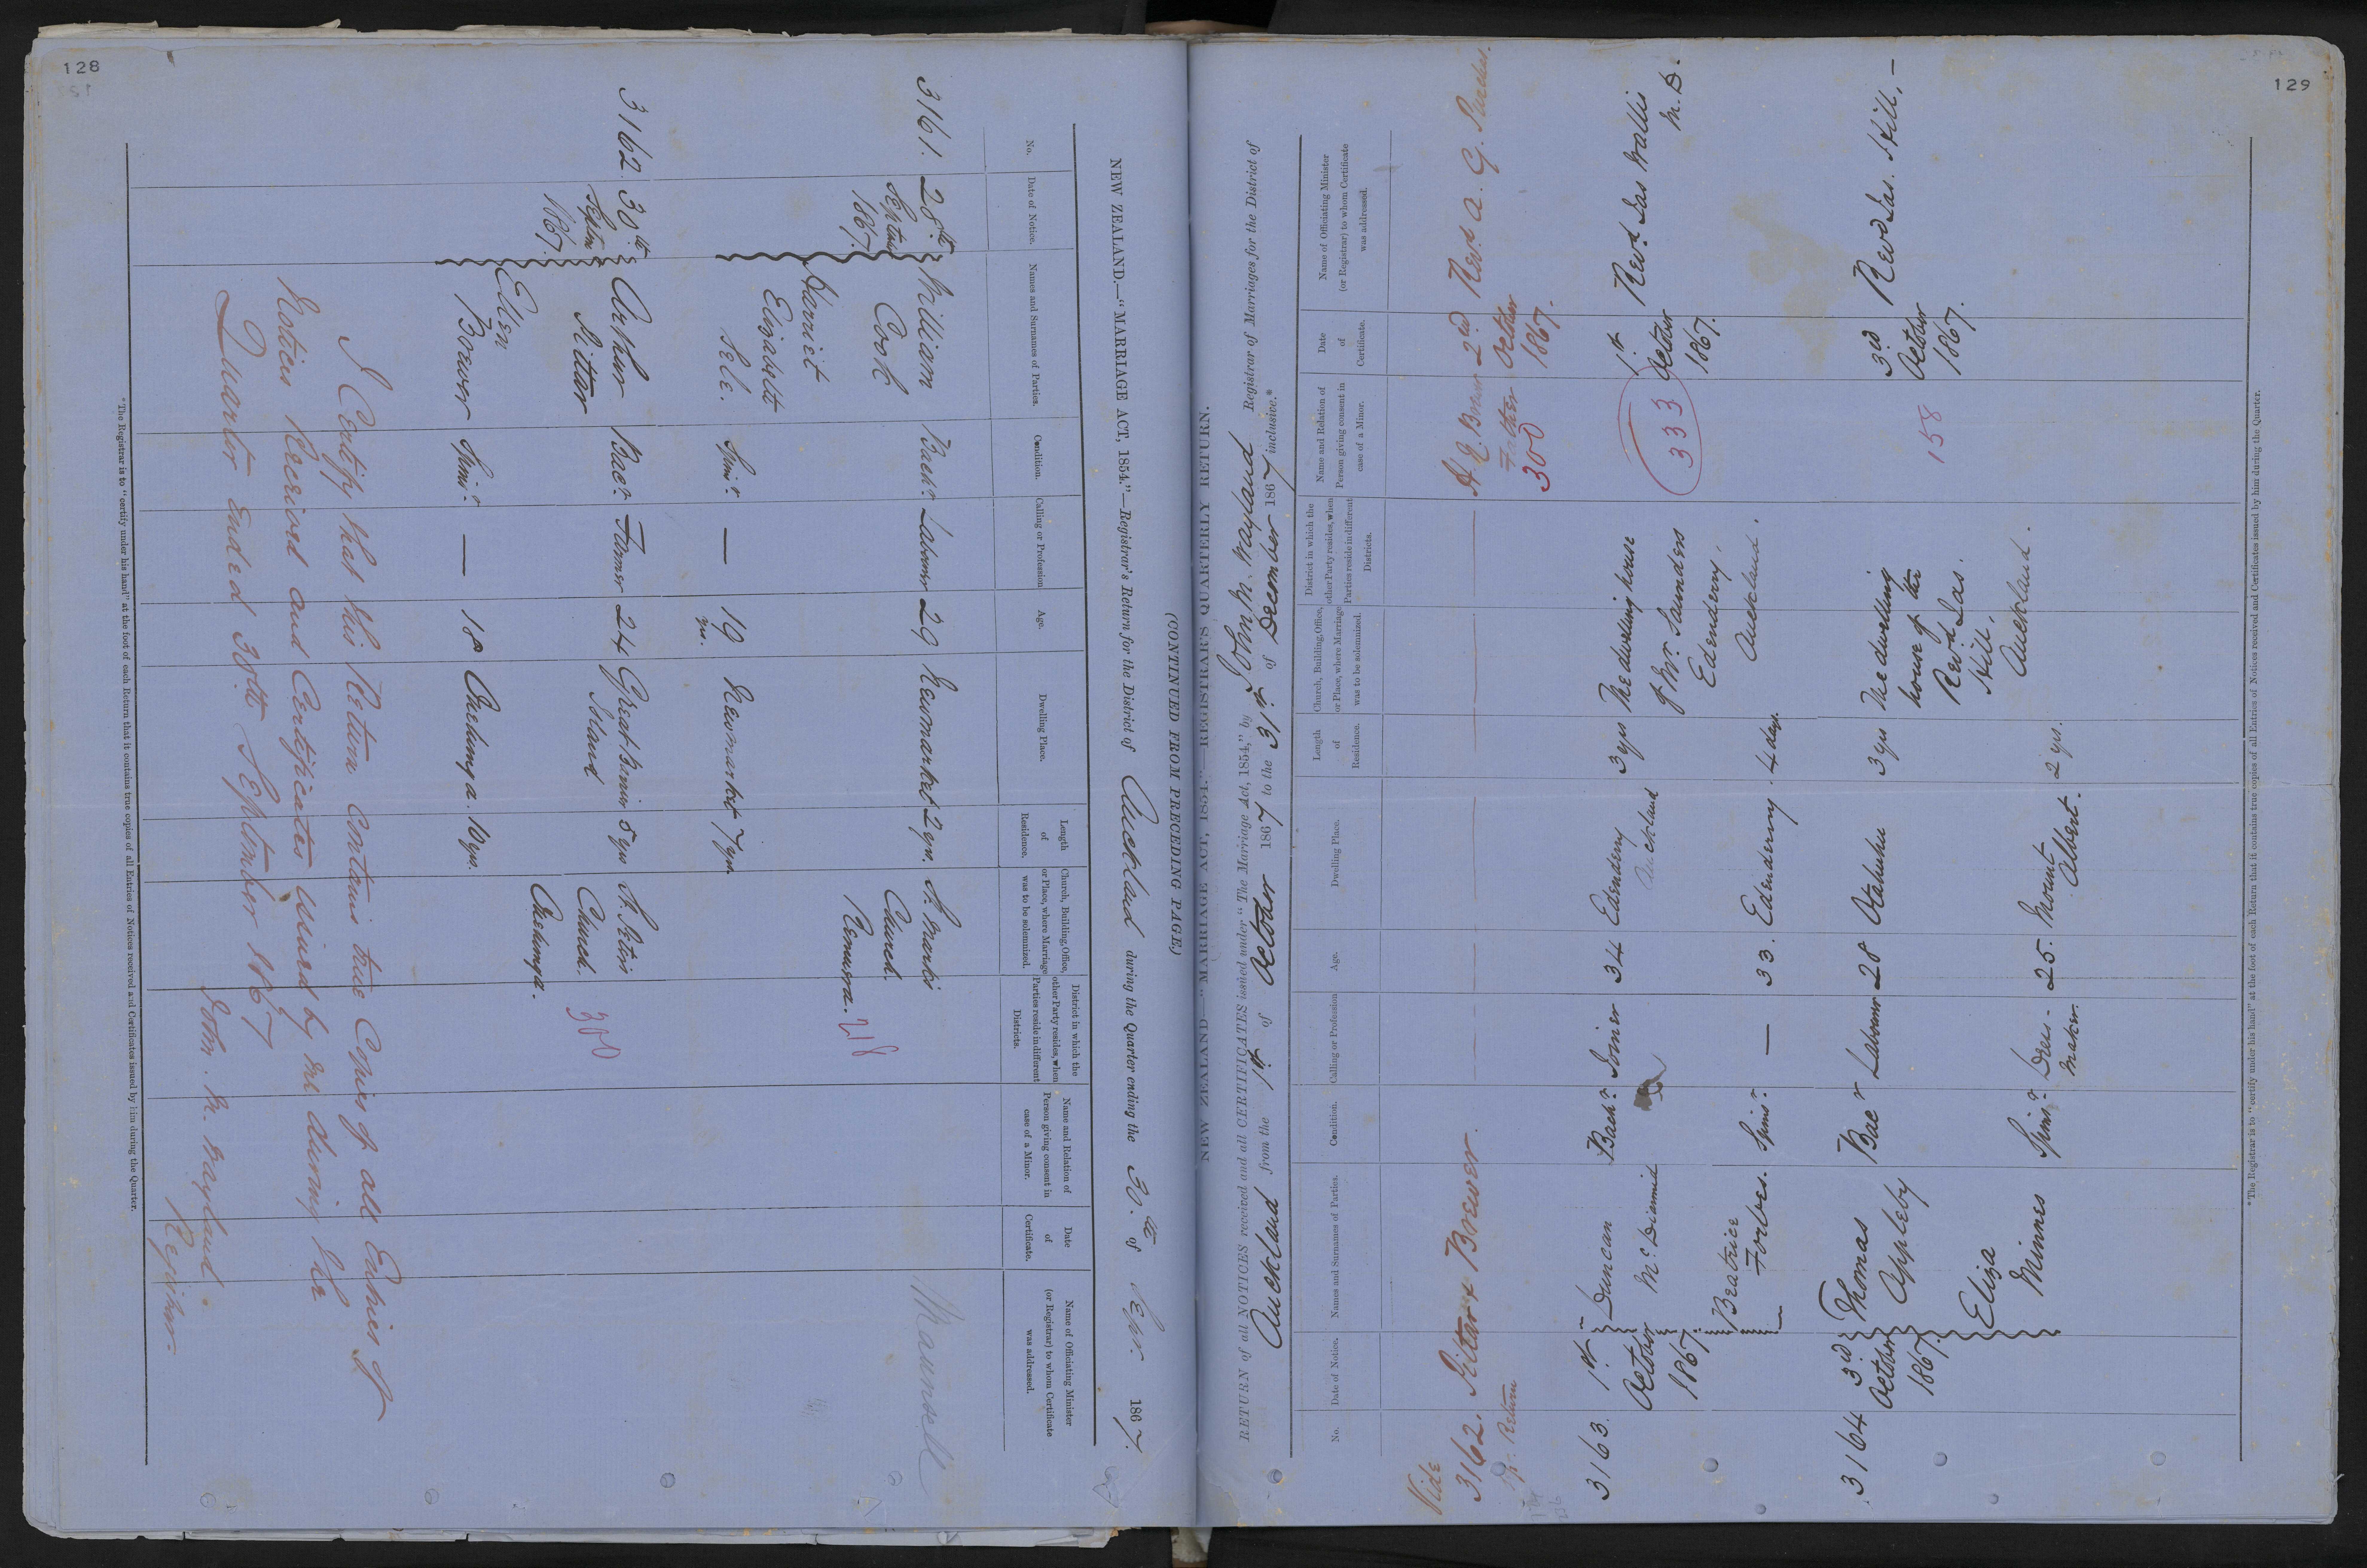 128
NEW ZEALAND.—"MARRIAGE ACT, 1854."—Registrar's Return for the District of Auckland during the Quarter ending the 30th of Septr. 1867.
No.
Date of Notice.
Names and Surnames of Parties.
Condition.
Calling or Profession
Age.
Dwelling Place.
Length of Residence.
Church, Building, Office, or Place, where Marriage was to be solemnized.
District in which the other Party resides, when Parties reside in different Districts.
Name and Relation of Person giving consent in case of a Minor.
Date of Certificate.
Name of Officiating Minister (or Registrar) to whom Certificate was addressed.
3161. 28th William Bachr. Labourer 29 Newmarket 2 yrs. St. Marks Maunsell
Septem Cook Church.
1867. Remuera. 218
Harriet
Elizabeth
Sele. Spinr. — 19 Newmarket 7 yrs.
yrs.
3162. 30th Arthur Bacr. Farmer 24 Great Barrier 5 yrs St. Peters
Septem Sittar Island Church. 300
1867. Onehunga.
Ellen
Brewer Spinr. — 18 Onehunga. 10 yrs.
I Certify that this Return Contains true Copies of all Entries of
Notices Received and Certificates issued by me during the
Quarter Ended 30th September 1867
John. M. Wayland.
Registrar.
*The Registrar is to "certify under his hand" at the foot of each Return that it contains true copies of all Entries of Notices received and Certificates issued by him during the Quarter.
129
(CONTINUED FROM PRECEDING PAGE.)
NEW ZEALAND—"MARRIAGE ACT, 1854."—REGISTRAR'S QUARTERLY RETURN.
RETURN of all NOTICES received and all CERTIFICATES issued under "The Marriage Act, 1854," by John M. Wayland Registrar of Marriages for the District of
Auckland from the 1st of October 1867 to the 31st of December 1867 inclusive.*
No.
Date of Notice.
Names and Surnames of Parties.
Condition.
Calling or Profession
Age.
Dwelling Place.
Length of Residence.
Church, Building, Office, or Place, where Marriage was to be solemnized.
District in which the other Party resides, when Parties reside in different Districts.
Name and Relation of Person giving consent in case of a Minor.
Date of Certificate.
Name of Officiating Minister (or Registrar) to whom Certificate was addressed.
Vide
3162. Sittar & Brewer. 2nd Revd. A. G. Purchas.
Return Father October
300 1867.
3163. 1st Duncan Bachr. Joiner 34 Edenderry 3 yrs The dwelling house 1st Revd. Jas Wallis
October McDiarmid Auckland of Mr. Saunders 333 October M.D.
1867. Edenderry, 1867.
Beatrice Auckland.
Forbes. Spinr. — 33. Edenderry. 4 days.
3164 3rd Thomas Bacr Labourer 28 Otahuhu 3 yrs The dwelling 3rd Revd Jas. Hill,—
October Appleby house of the 158 October
1867. Revd. Jas. 1867.
Eliza Hill,
Mimmes Spinr. Dress- 25. Mount 2 yrs. Auckland.
maker. Albert.
*The Registrar is to "certify under his hand" at the foot of each Return that it contains true copies of all Entries of Notices received and Certificates issued by him during the Quarter.